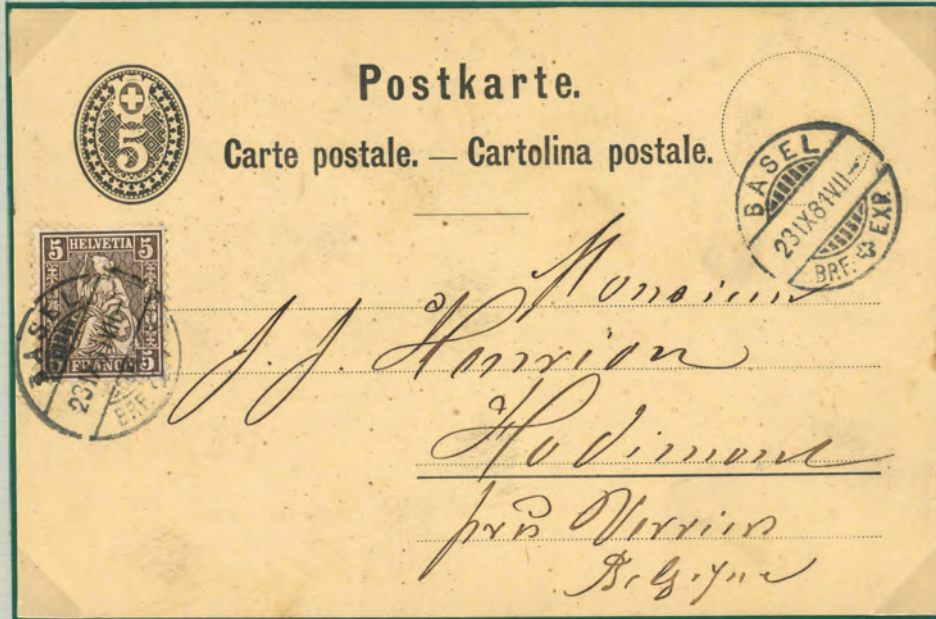 Postkarte.
5
Carte postale. — Cartolina postale.
BASEL
23 IX 81 VII-
BRF. EXP.
5 HELVETIA 5
FRANCO 5
BASEL
23 IX
BRF.
Monsieur
J. J. Henrion
Hodimont
près Verviers
Belgique